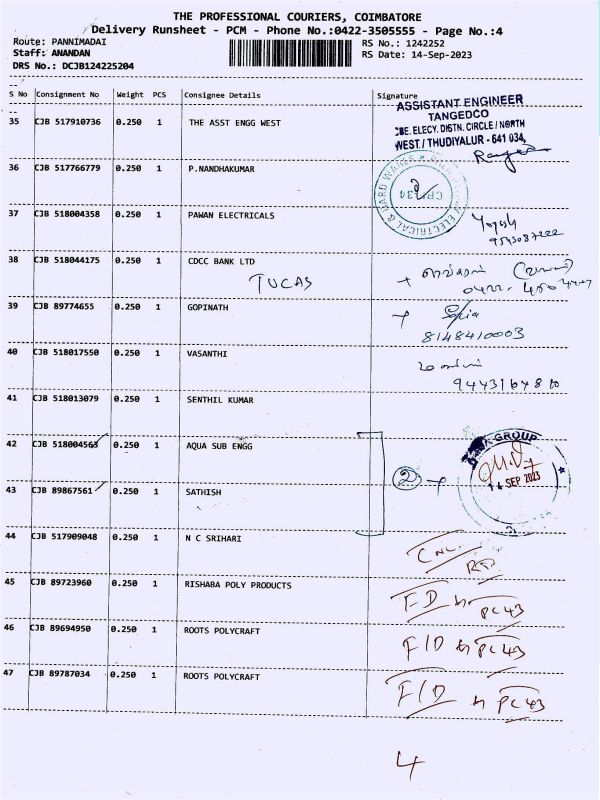 THE PROFESSIONAL COURIERS, COIMBATORE
Delivery Runsheet - PCM - Phone No.:0422-3505555 - Page No.:4
Route: PANNIMADAI
RS No.: 1242252
Staff: ANANDAN
RS Date: 14-Sep-2023
DRS No.: DCJB124225204
S No Consignment No Weight PCS Consignee Details Signature
ASSISTANT ENGINEER
TANGEDCO
CBE. ELECY. DISTN. CIRCLE / NORTH
WEST / THUDIYALUR - 641 034,
35 CJB 517910736 0.250 1 THE ASST ENGG WEST
36 CJB 517766779 0.250 1 P.NANDHAKUMAR
ELECTRICAL & HARDWARES
37 CJB 518004358 0.250 1 PAWAN ELECTRICALS
Yogesh
38 CJB 518044175 0.250 1 CDCC BANK LTD
TUCAS
39 CJB 89774655 0.250 1 GOPINATH
8148410003
40 CJB 518017550 0.250 1 VASANTHI
41 CJB 518013079 0.250 1 SENTHIL KUMAR
42 CJB 518004563 0.250 1 AQUA SUB ENGG
GROUP
2
14 SEP 2023
43 CJB 89867561 0.250 1 SATHISH
44 CJB 517909048 0.250 1 N C SRIHARI
45 CJB 89723960 0.250 1 RISHABA POLY PRODUCTS
F/D PC43
46 CJB 89694950 0.250 1 ROOTS POLYCRAFT
F/D PC43
47 CJB 89787034 0.250 1 ROOTS POLYCRAFT
F/D PC43
4